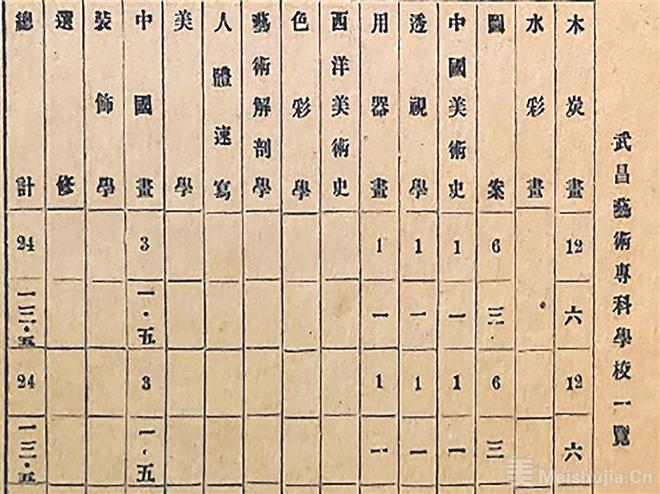 武昌藝術專科學校一覽
木炭畫 12 六 12 六
水彩畫
圖案 6 三 6 三
中國美術史 1 一 1 一
透視學 1 一 1 一
用器畫 1 一 1 一
西洋美術史
色彩學
藝術解剖學
人體速寫
美學
中國畫 3 一·五 3 一·五
裝飾學
選修
總計 24 一三·五 24 一三·五
Meishujia.Cn